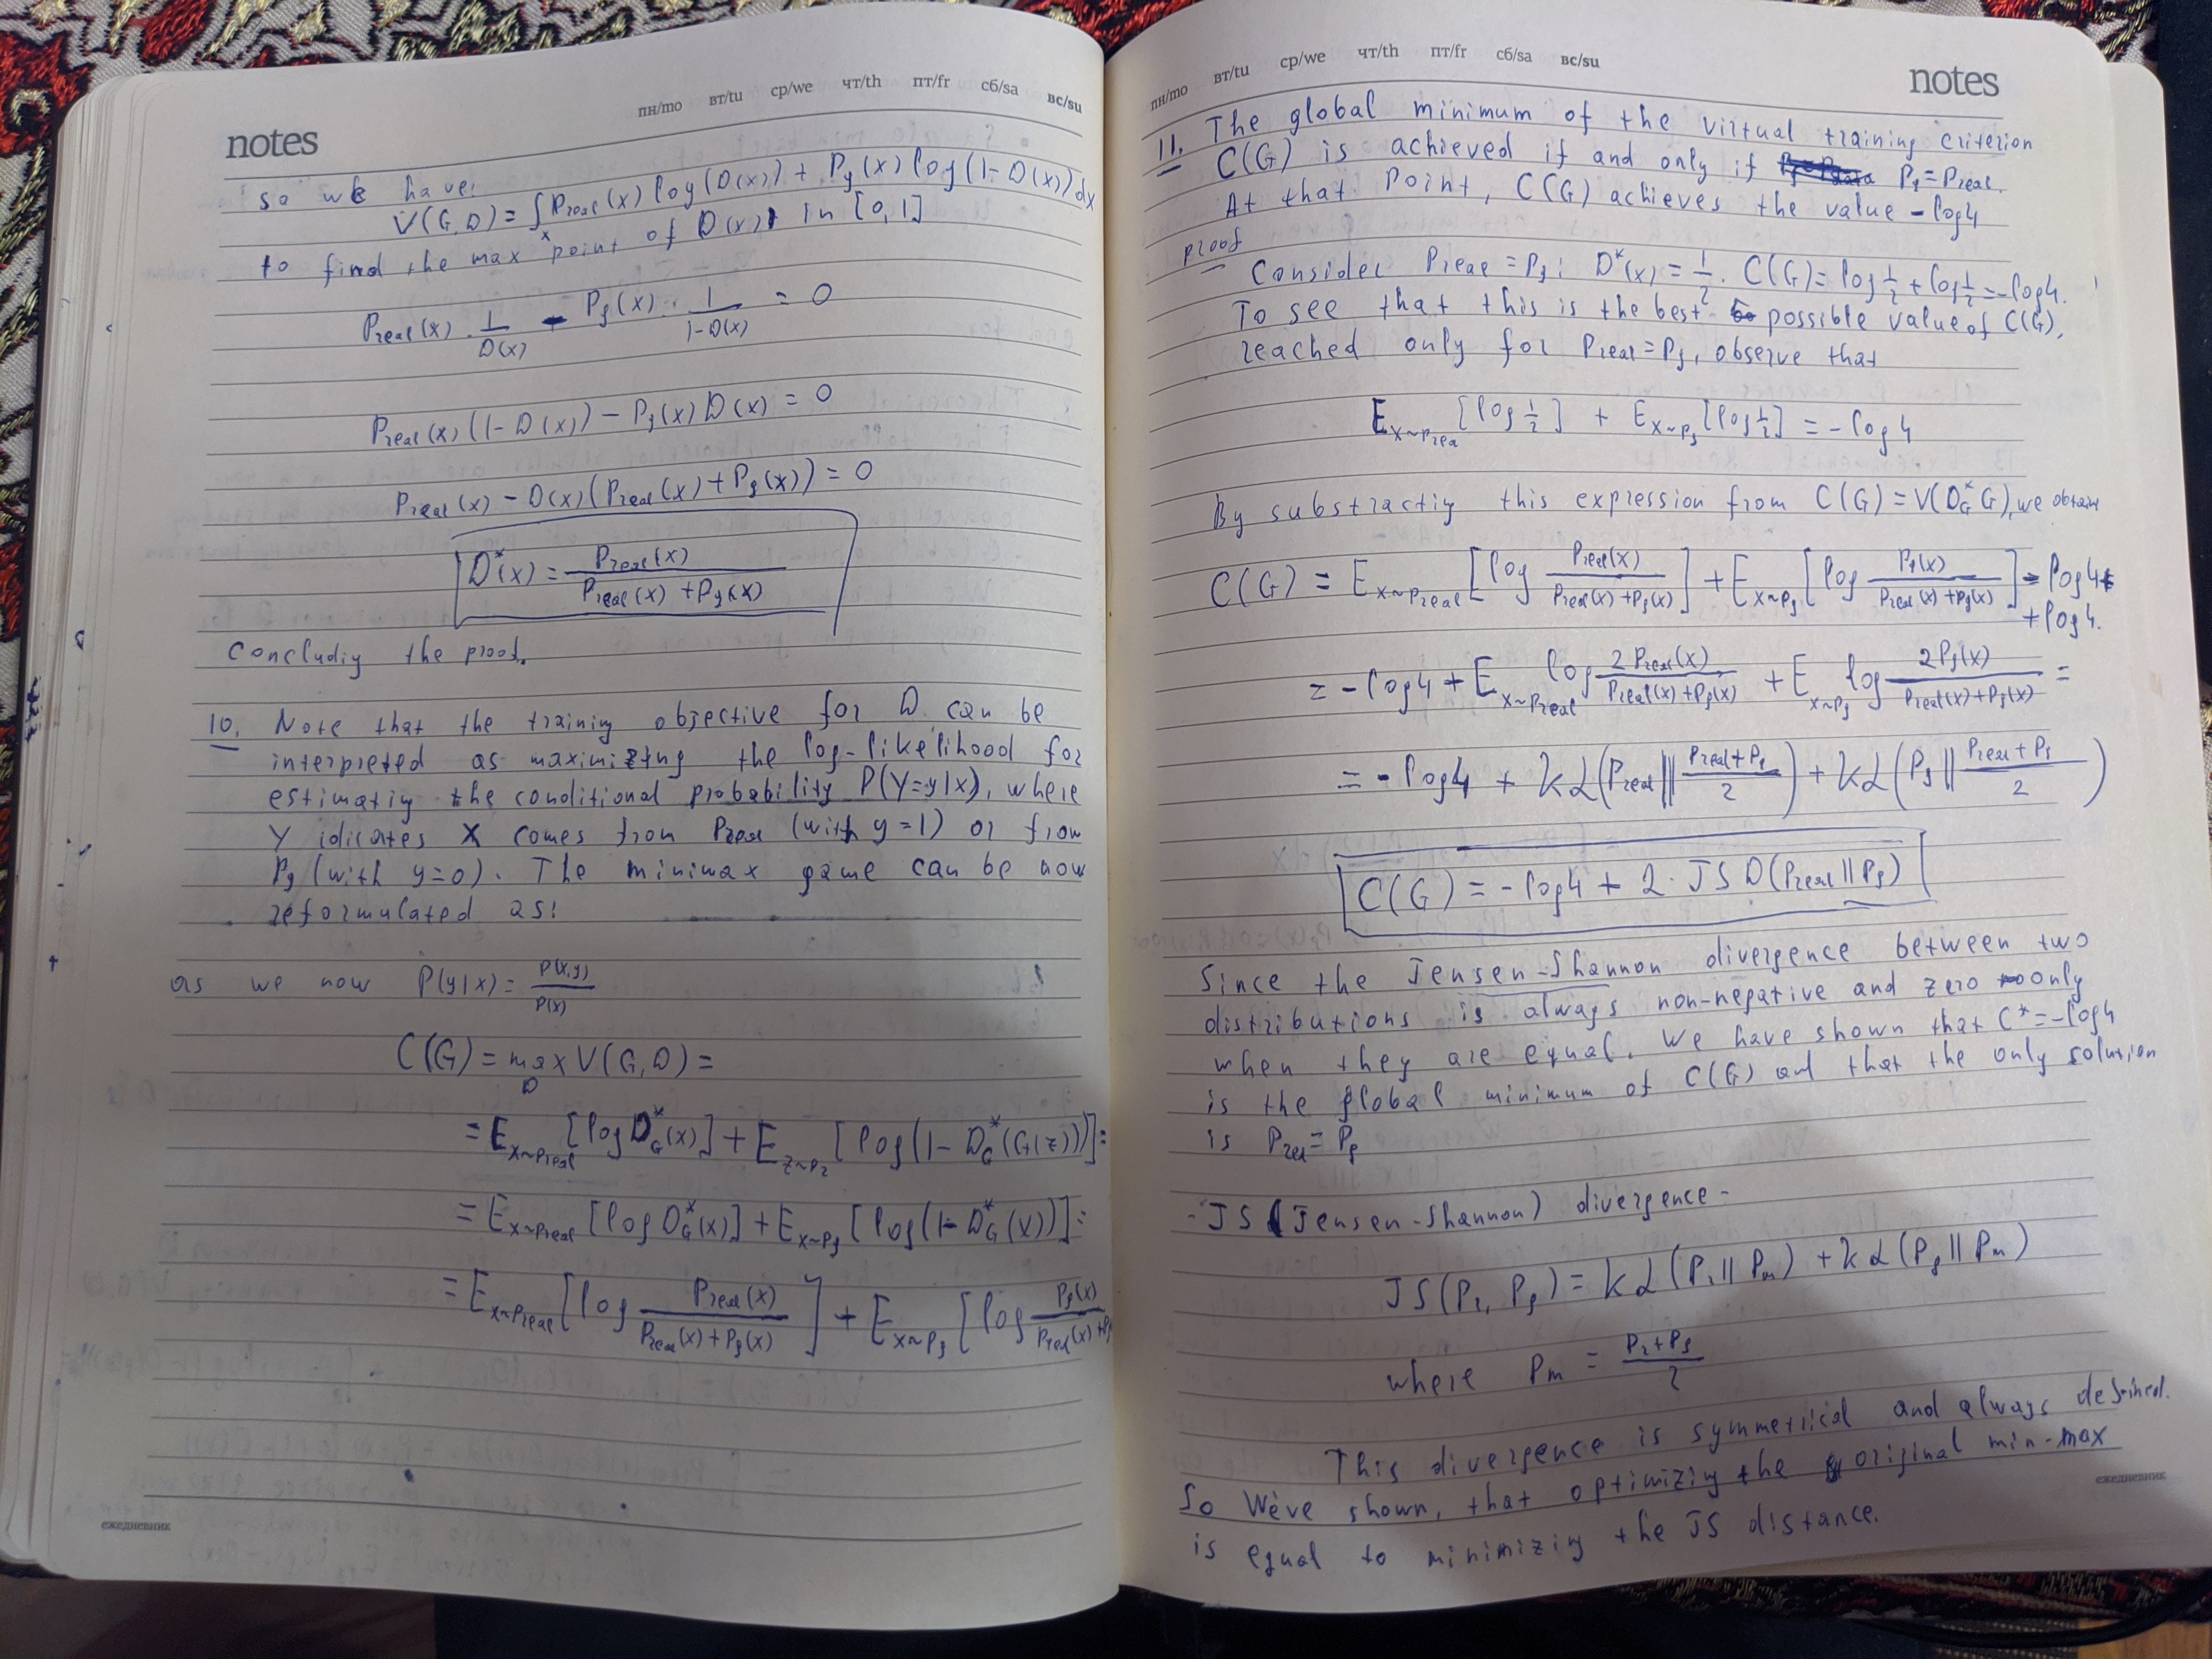 notes
пн/mo вт/tu ср/we чт/th пт/fr сб/sa вс/su
so we have:
V(G,D) = ∫ₓ Preal(x) log(D(x)) + Pg(x) log(1-D(x)) dx
to find the max point of D(x) in [0,1]
Preal(x) · 1/D(x) - Pg(x) · 1/(1-D(x)) = 0
Preal(x)(1-D(x)) - Pg(x)D(x) = 0
Preal(x) - D(x)(Preal(x)+Pg(x)) = 0
D*(x) = Preal(x)/(Preal(x)+Pg(x))
concludiy the proof.
10. Note that the training objective for D can be
interpreted as maximizing the log-likelihood for
estimatiy the conditional probability P(Y=y|x), where
Y idicates X comes from Preal (with y=1) or from
Pg (with y=0). The minimax game can be now
reformulated as:
as we now P(y|x) = P(x,y)/P(x)
C(G) = max_D V(G,D) =
= E_x~Preal [log D*_G(x)] + E_z~Pz [log(1-D*_G(G(z)))] =
= E_x~Preal [log D*_G(x)] + E_x~Pg [log(1-D*_G(x))] =
= E_x~Preal [log Preal(x)/(Preal(x)+Pg(x))] + E_x~Pg [log Pg(x)/(Preal(x)+Pg
ежедневник
пн/mo вт/tu ср/we чт/th пт/fr сб/sa вс/su
notes
11. The global minimum of the virtual training criterion
C(G) is achieved if and only if Pg = Preal.
At that point, C(G) achieves the value -log4
proof
Consider Preal = Pg: D*(x) = 1/2. C(G) = log 1/2 + log 1/2 = -log4.
To see that this is the best possible value of C(G),
reached only for Preal = Pg, observe that
E_x~Preal [log 1/2] + E_x~Pg [log 1/2] = -log4
By substractiy this expression from C(G) = V(D*_G G), we obtain
C(G) = E_x~Preal [log Preal(x)/(Preal(x)+Pg(x))] + E_x~Pg [log Pg(x)/(Preal(x)+Pg(x))] - log4 +
+ log4.
= -log4 + E_x~Preal log 2Preal(x)/(Preal(x)+Pg(x)) + E_x~Pg log 2Pg(x)/(Preal(x)+Pg(x)) =
= -log4 + KL(Preal || (Preal+Pg)/2) + KL(Pg || (Preal+Pg)/2)
C(G) = -log4 + 2 · JSD(Preal || Pg)
Since the Jensen-Shannon divergence between two
distributions is always non-negative and zero only
when they are equal. We have shown that C* = -log4
is the global minimum of C(G) and that the only solution
is Preal = Pg
- JS (Jensen-Shannon) divergence -
JS(Pr, Pg) = KL(Pr || Pm) + KL(Pg || Pm)
where Pm = (Pr+Pg)/2
This divergence is symmetrical and always defined.
So We've shown, that optimiziy the original min-max
is equal to minimiziy the JS distance.
ежедневник